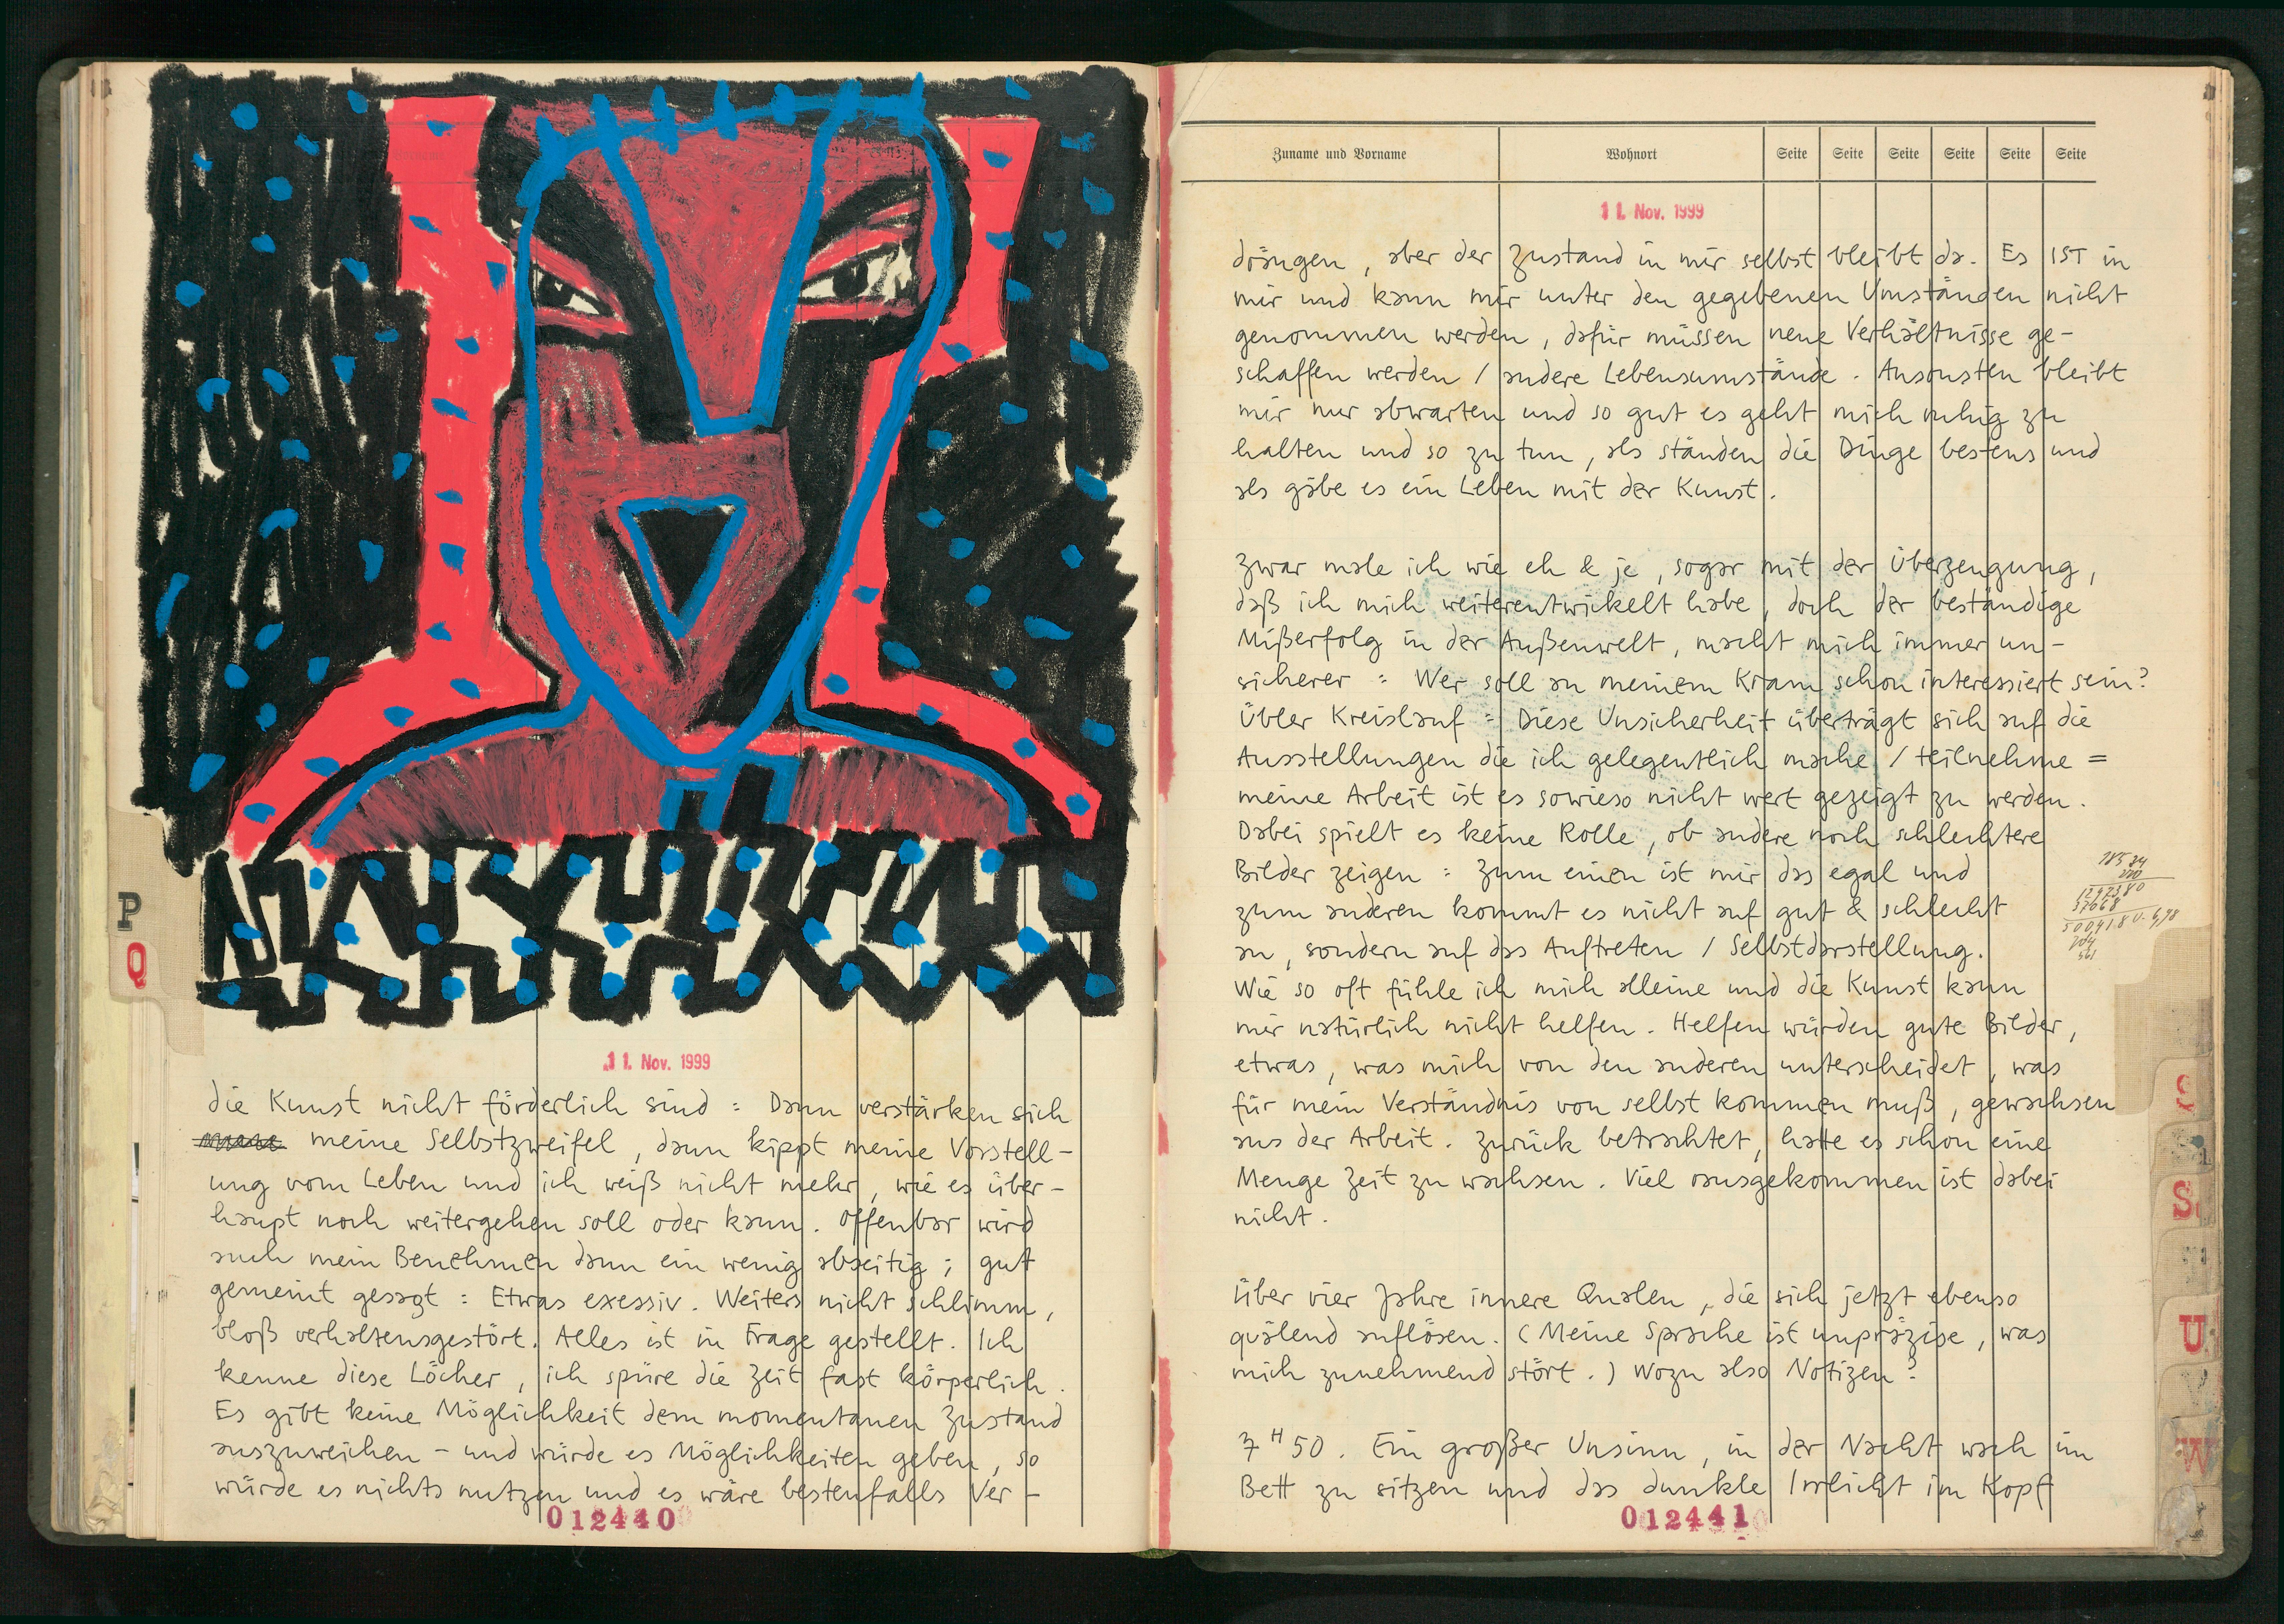 P
Q
11. Nov. 1999
die Kunst nicht förderlich sind : Dann verstärken sich
meine Selbstzweifel, dann kippt meine Vorstell-
ung vom Leben und ich weiß nicht mehr, wie es über-
haupt noch weitergehen soll oder kann. Offenbar wird
auch mein Benehmen dann ein wenig abseitig ; gut
gemeint gesagt : Etwas exessiv. Weiters nicht schlimm,
bloß verhaltensgestört. Alles ist in Frage gestellt. Ich
kenne diese Löcher, ich spüre die Zeit fast körperlich.
Es gibt keine Möglichkeit dem momentanen Zustand
auszuweichen – und würde es Möglichkeiten geben, so
würde es nichts nutzen und es wäre bestenfalls Ver-
012440
Zuname und Vorname Wohnort Seite Seite Seite Seite Seite Seite
11. Nov. 1999
drängen, aber der Zustand in mir selbst bleibt da. Es IST in
mir und kann mir unter den gegebenen Umständen nicht
genommen werden, dafür müssen neue Verhältnisse ge-
schaffen werden / andere Lebensumstände. Ansonsten bleibt
mir nur abwarten und so gut es geht mich ruhig zu
halten und so zu tun, als ständen die Dinge bestens und
als gäbe es ein Leben mit der Kunst.
Zwar male ich wie eh & je, sogar mit der Überzeugung,
daß ich mich weiterentwickelt habe, doch der beständige
Mißerfolg in der Außenwelt, macht mich immer un-
sicherer : Wer soll an meinem Kram schon interessiert sein?
Übler Kreislauf : Diese Unsicherheit überträgt sich auf die
Ausstellungen die ich gelegentlich mache / teilnehme =
meine Arbeit ist es sowieso nicht wert gezeigt zu werden.
Dabei spielt es keine Rolle, ob andere noch schlechtere
Bilder zeigen : Zum einen ist mir das egal und
zum anderen kommt es nicht auf gut & schlecht
an, sondern auf das Auftreten / Selbstdarstellung.
Wie so oft fühle ich mich alleine und die Kunst kann
mir natürlich nicht helfen. Helfen würden gute Bilder,
etwas, was mich von den anderen unterscheidet, was
für mein Verständnis von selbst kommen muß, gewachsen
aus der Arbeit. Zurück betrachtet, hatte es schon eine
Menge Zeit zu wachsen. Viel rausgekommen ist dabei
nicht.
Über vier Jahre innere Qualen, die sich jetzt ebenso
quälend auflösen. (Meine Sprache ist unpräzise, was
mich zunehmend stört.) Wozu also Notizen?
7 H 50. Ein großer Unsinn, in der Nacht wach im
Bett zu sitzen und das dunkle Irrlicht im Kopf
012441
S
U
W